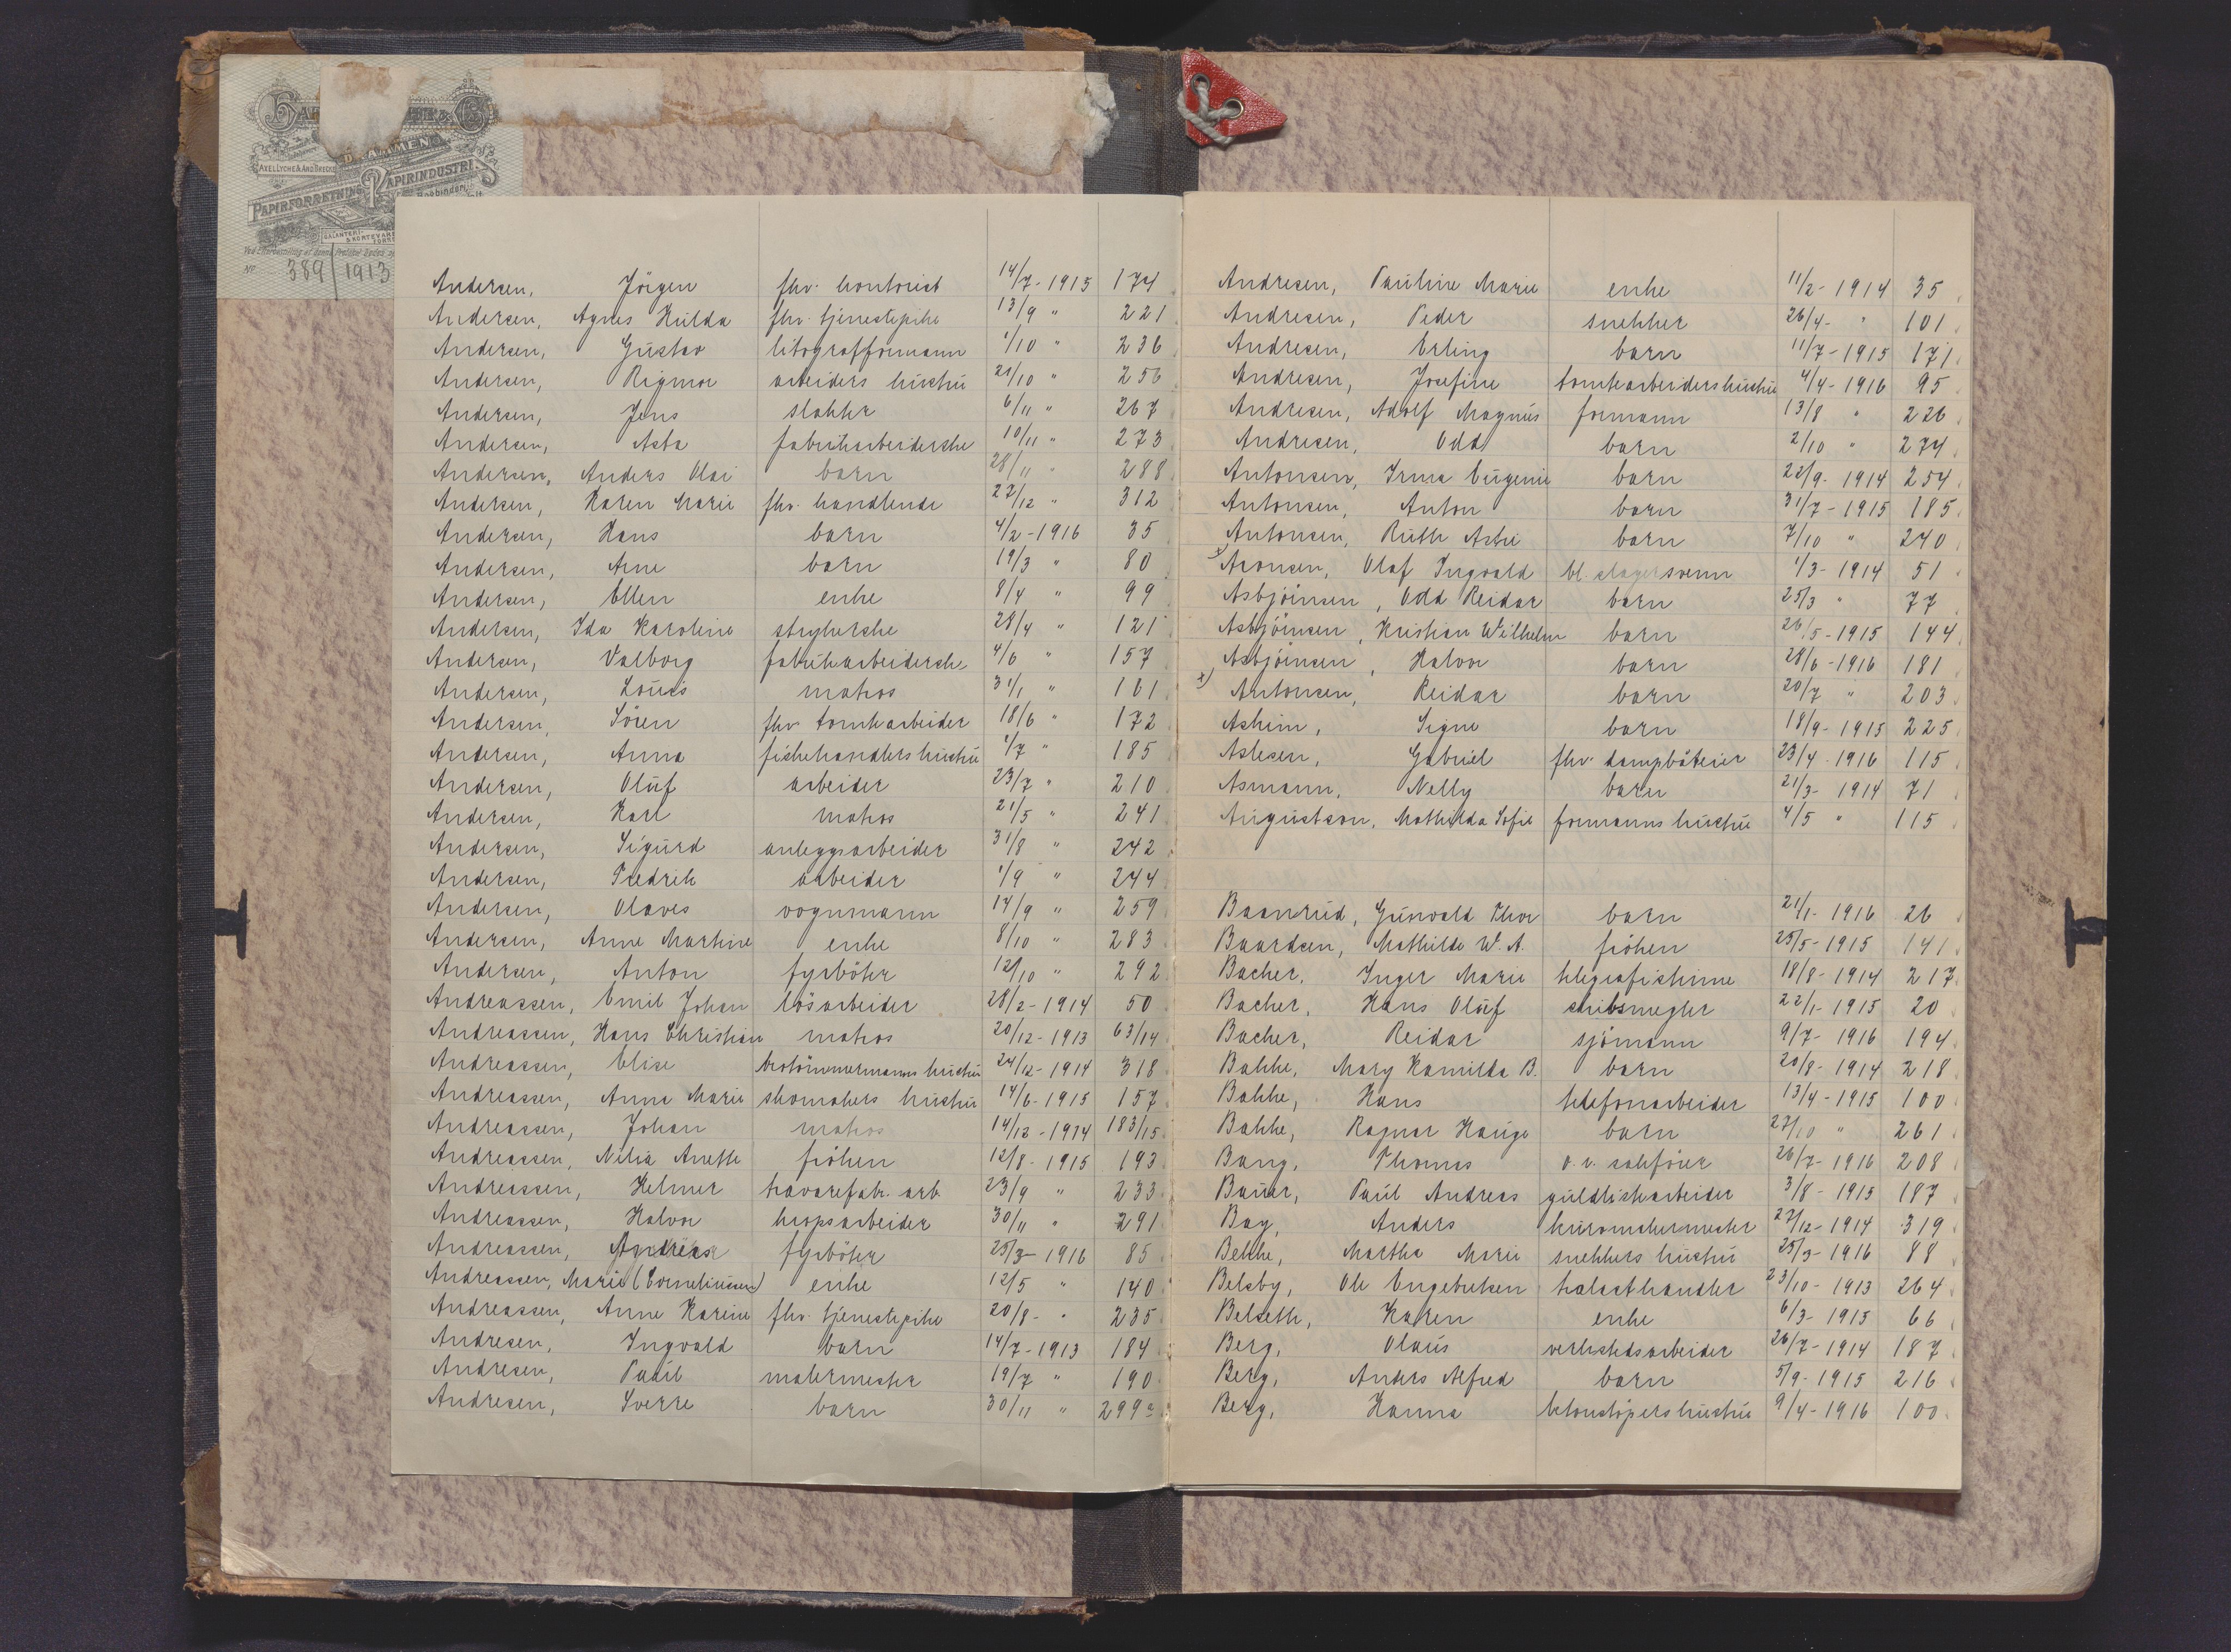 DRAMMEN
AXEL LYCHE & AND
PAPIRFORRETNING PAPIRINDUSTRI
GALANTERI-
& KORTEVARE
No 389/1913
Andersen, Jörgen fhv. kontorist 14/7-1915 174
Andersen, Agnes Hulda fhv. tjenestepike 13/9 " 221
Andersen, Gustav litografformann 1/10 " 236
Andersen, Rigmor arbeiders hustru 21/10 " 256
Andersen, Jens slakter 6/11 " 267
Andersen, Asta fabrikarbeiderske 10/11 " 273
Andersen, Anders Olai barn 28/11 " 288
Andersen, Karen Marie fhv. handlende 22/12 " 312
Andersen, Hans barn 4/2-1916 35
Andersen, Arne barn 19/3 " 80
Andersen, Ellen enke 8/4 " 99
Andersen, Ida Karoline strykerske 28/4 " 121
Andersen, Valborg fabrikarbeiderske 4/6 " 157
Andersen, Louis matros 31/1 " 161
Andersen, Sören fhv tomtearbeider 18/6 " 172
Andersen, Anna fiskehandlers hustru 1/7 " 185
Andersen, Oluf arbeider 23/7 " 210
Andersen, Karl matros 21/5 " 241
Andersen, Sigurd anleggsarbeider 31/8 " 242
Andersen, Fredrik arbeider 1/9 " 244
Andersen, Olaves vognmann 14/9 " 259
Andersen, Anne Martine enke 8/10 " 283
Andersen, Anton fyrböter 12/10 " 292
Andreassen, Emil Johan lösarbeider 28/2-1914 50
Andreassen, Hans Christian matros 20/12-1913 63/14
Andreassen, Elise hustru 24/12-1914 318
Andreassen, Anna Marie skomakers hustru 14/6-1915 157
Andreassen, Johan matros 14/12-1914 183/15
Andreassen, Nilia Anette fröken 12/8-1915 193
Andreassen, Helmer travarefabr. arb. 23/9 " 233
Andreassen, Halvor kropsarbeider 30/11 " 291
Andreassen, Andreas fyrböter 25/3-1916 85
Andreassen, Marie (Corneliussen) enke 12/5 " 140
Andreassen, Anne Karine fhv. tjenestepike 20/8- " 235
Andresen, Ingvald barn 14/7-1913 184
Andresen, Paul malermester 19/7 " 190
Andresen, Sverre barn 30/11 " 299a
Andresen, Pauline Marie enke 11/2-1914 35
Andresen, Peder snekker 26/4- " 101
Andresen, Erling barn 11/7-1915 171
Andresen, Josefine tomtearbeiders hustru 4/4-1916 95
Andresen, Adolf Magnus formann 13/8 " 226
Andresen, Odd barn 2/10 " 274
Antonsen, Irma Eugenie barn 22/9-1914 254
Antonsen, Anton barn 31/7-1915 185
Antonsen, Ruth barn 7/10 " 240
x) Aronsen, Olaf Ingvald bl. slagersvenn 1/3-1914 51
Asbjörnsen, Odd Reidar barn 25/3 " 77
Asbjörnsen, Kristian Wilhelm barn 26/5-1915 144
Asbjörnsen, Halvor barn 28/6-1916 181
x) Antonsen, Reidar barn 20/7 " 203
Askim, Signe barn 18/9-1915 225
Aslesen, Gabriel fhv. dampbåteier 23/4-1916 115
Asmann, Nelly barn 21/3-1914 71
Augustson, Mathilda Sofie formanns hustru 4/5 " 115
Baanrud, Gunvald Thor barn 21/1-1916 26
Baardsen, Mathilde W. A. fröken 25/5-1915 141
Bacher, Inger Marie telegrafistinne 18/8-1914 217
Bacher, Hans Oluf skibsmegler 22/1-1915 20
Bacher, Reidar sjömann 9/7-1916 194
Bakke, Mary Kamilla B. barn 20/8-1914 218
Bakke, Hans telefonarbeider 13/4-1915 100
Bakke, Ragnar Hauge barn 27/10 " 261
Bang, Thomas o.r. sakförer 26/7-1916 208
Bauer, Paul Andreas guldlistarbeider 3/8-1915 187
Bay, Anders kurvmakermester 27/12-1914 319
Bekke, Martha Marie snekkers hustru 25/3-1916 88
Belsby, Ole Engebretsen trelasthandler 23/10-1913 264
Belseth, Karen enke 6/3-1915 66
Berg, Olaus verkstedsarbeider 26/7-1914 187
Berg, Anders Alfred barn 5/9-1915 216
Berg, Hanna betonstöpers hustru 9/4-1916 100